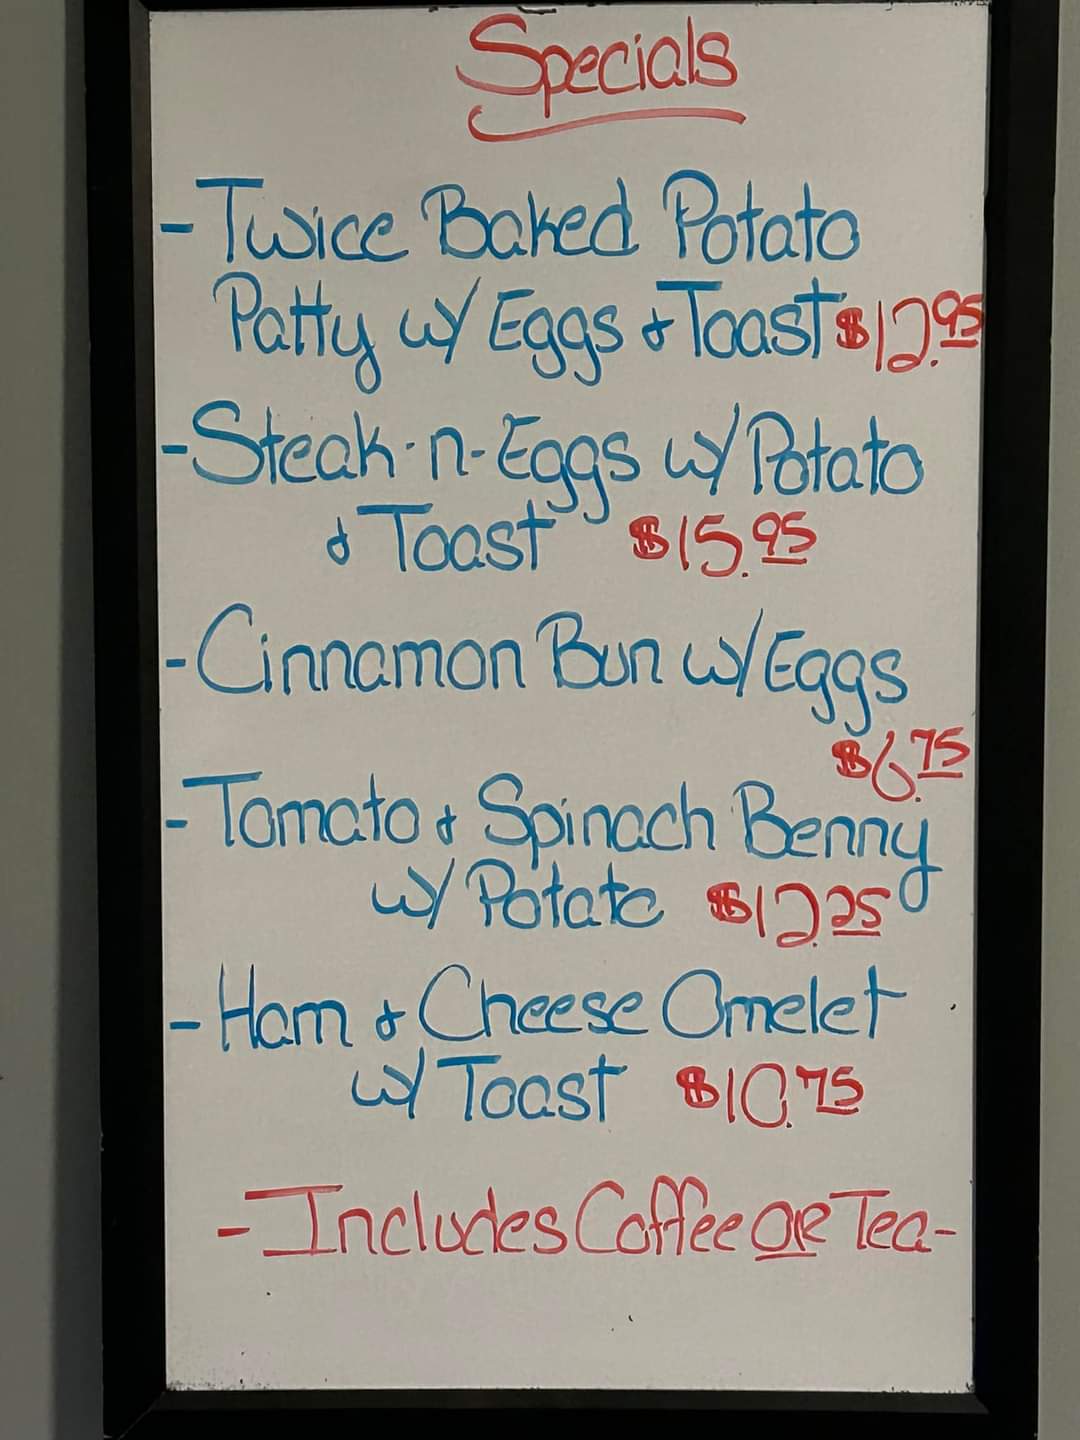 Specials
- Twice Baked Potato
Patty w/ Eggs & Toast $12.95
- Steak-n-Eggs w/ Potato
& Toast $15.95
- Cinnamon Bun w/ Eggs
$6.75
- Tomato & Spinach Benny
w/ Potato $12.25
- Ham & Cheese Omelet
w/ Toast $10.75
- Includes Coffee OR Tea -